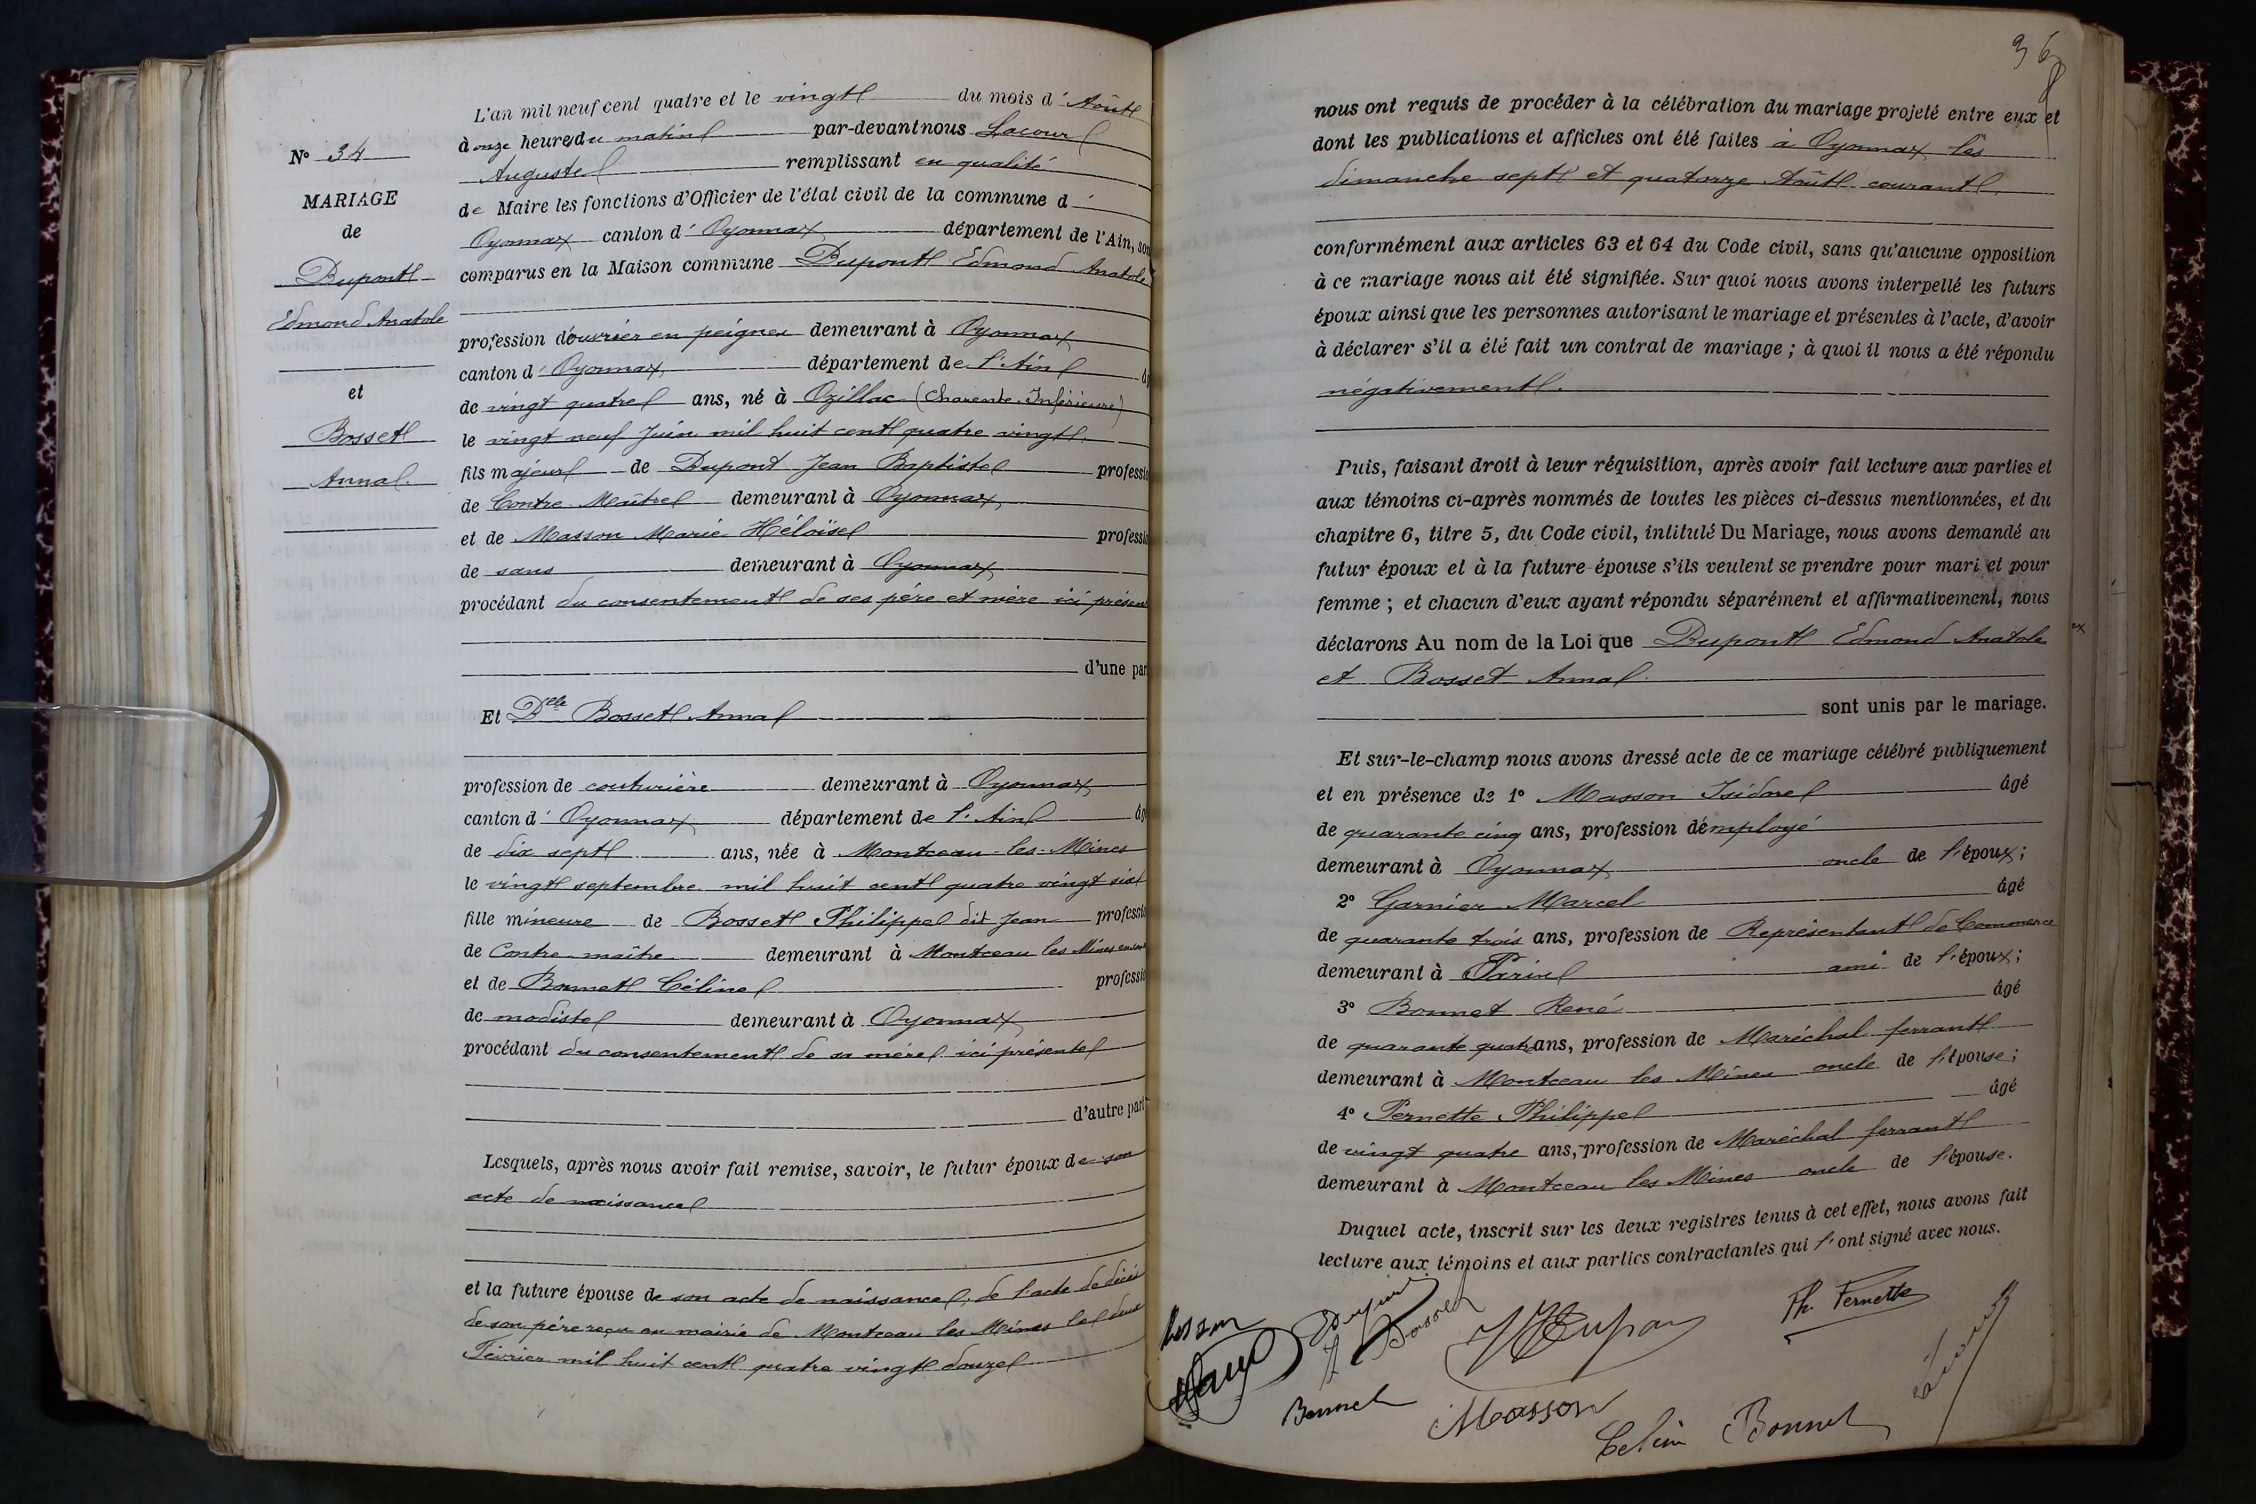 N° 34
MARIAGE
de
Dupont
Edmond Anatole
et
Bosset
Anna
L'an mil neuf cent quatre et le vingt du mois d' Août
à onze heures du matin par-devant nous Lacour
Auguste remplissant en qualité
de Maire les fonctions d'Officier de l'état civil de la commune d'
Oyonnax canton d' Oyonnax département de l'Ain, son
comparus en la Maison commune Dupont Edmond Anatole
profession d'ouvrier en peignes demeurant à Oyonnax
canton d' Oyonnax département de l'Ain âg
de vingt quatre ans, né à Ozillac (Charente Inférieure)
le vingt neuf Juin mil huit cent quatre vingt
fils majeur de Dupont Jean Baptiste professio
de Contre Maître demeurant à Oyonnax
et de Masson Marie Héloïse professio
de sans demeurant à Oyonnax
procédant du consentement de ses père et mère ici présen
d'une par
Et Delle Bosset Anna
profession de couturière demeurant à Oyonnax
canton d' Oyonnax département de l'Ain âg
de dix sept ans, née à Montceau-les-Mines
le vingt septembre mil huit cent quatre vingt six
fille mineure de Bosset Philippe dit Jean professio
de Contre-maître demeurant à Montceau les Mines
et de Bonnet Céline professio
de modiste demeurant à Oyonnax
procédant du consentement de sa mère ici présente
d'autre part
Lesquels, après nous avoir fait remise, savoir, le futur époux de son
acte de naissance
et la future épouse de son acte de naissance, de l'acte de décès
de son père reçu en mairie de Montceau les Mines le deux
Février mil huit cent quatre vingt douze
36
nous ont requis de procéder à la célébration du mariage projeté entre eux et
dont les publications et affiches ont été faites à Oyonnax les
dimanche sept et quatorze Août courant
conformément aux articles 63 et 64 du Code civil, sans qu'aucune opposition
à ce mariage nous ait été signifiée. Sur quoi nous avons interpellé les futurs
époux ainsi que les personnes autorisant le mariage et présentes à l'acte, d'avoir
à déclarer s'il a été fait un contrat de mariage ; à quoi il nous a été répondu
négativement.
Puis, faisant droit à leur réquisition, après avoir fait lecture aux parties et
aux témoins ci-après nommés de toutes les pièces ci-dessus mentionnées, et du
chapitre 6, titre 5, du Code civil, intitulé Du Mariage, nous avons demandé au
futur époux et à la future épouse s'ils veulent se prendre pour mari et pour
femme ; et chacun d'eux ayant répondu séparément et affirmativement, nous
déclarons Au nom de la Loi que Dupont Edmond Anatole
et Bosset Anna
sont unis par le mariage.
Et sur-le-champ nous avons dressé acte de ce mariage célébré publiquement
et en présence de 1° Masson Isidore âgé
de quarante cinq ans, profession d'employé
demeurant à Oyonnax oncle de l'époux ;
2° Garnier Marcel âgé
de quarante trois ans, profession de Représentant de Commerce
demeurant à Paris ami de l'époux ;
3° Bonnet René âgé
de quarante quatre ans, profession de Maréchal ferrant
demeurant à Montceau les Mines oncle de l'épouse ;
4° Pernette Philippe âgé
de vingt quatre ans, profession de Maréchal ferrant
demeurant à Montceau les Mines oncle de l'épouse.
Duquel acte, inscrit sur les deux registres tenus à cet effet, nous avons fait
lecture aux témoins et aux parties contractantes qui l'ont signé avec nous.
Masson
A Bosset
Dupont
Ph. Pernette
Bonnet
Masson
Celine Bonnet